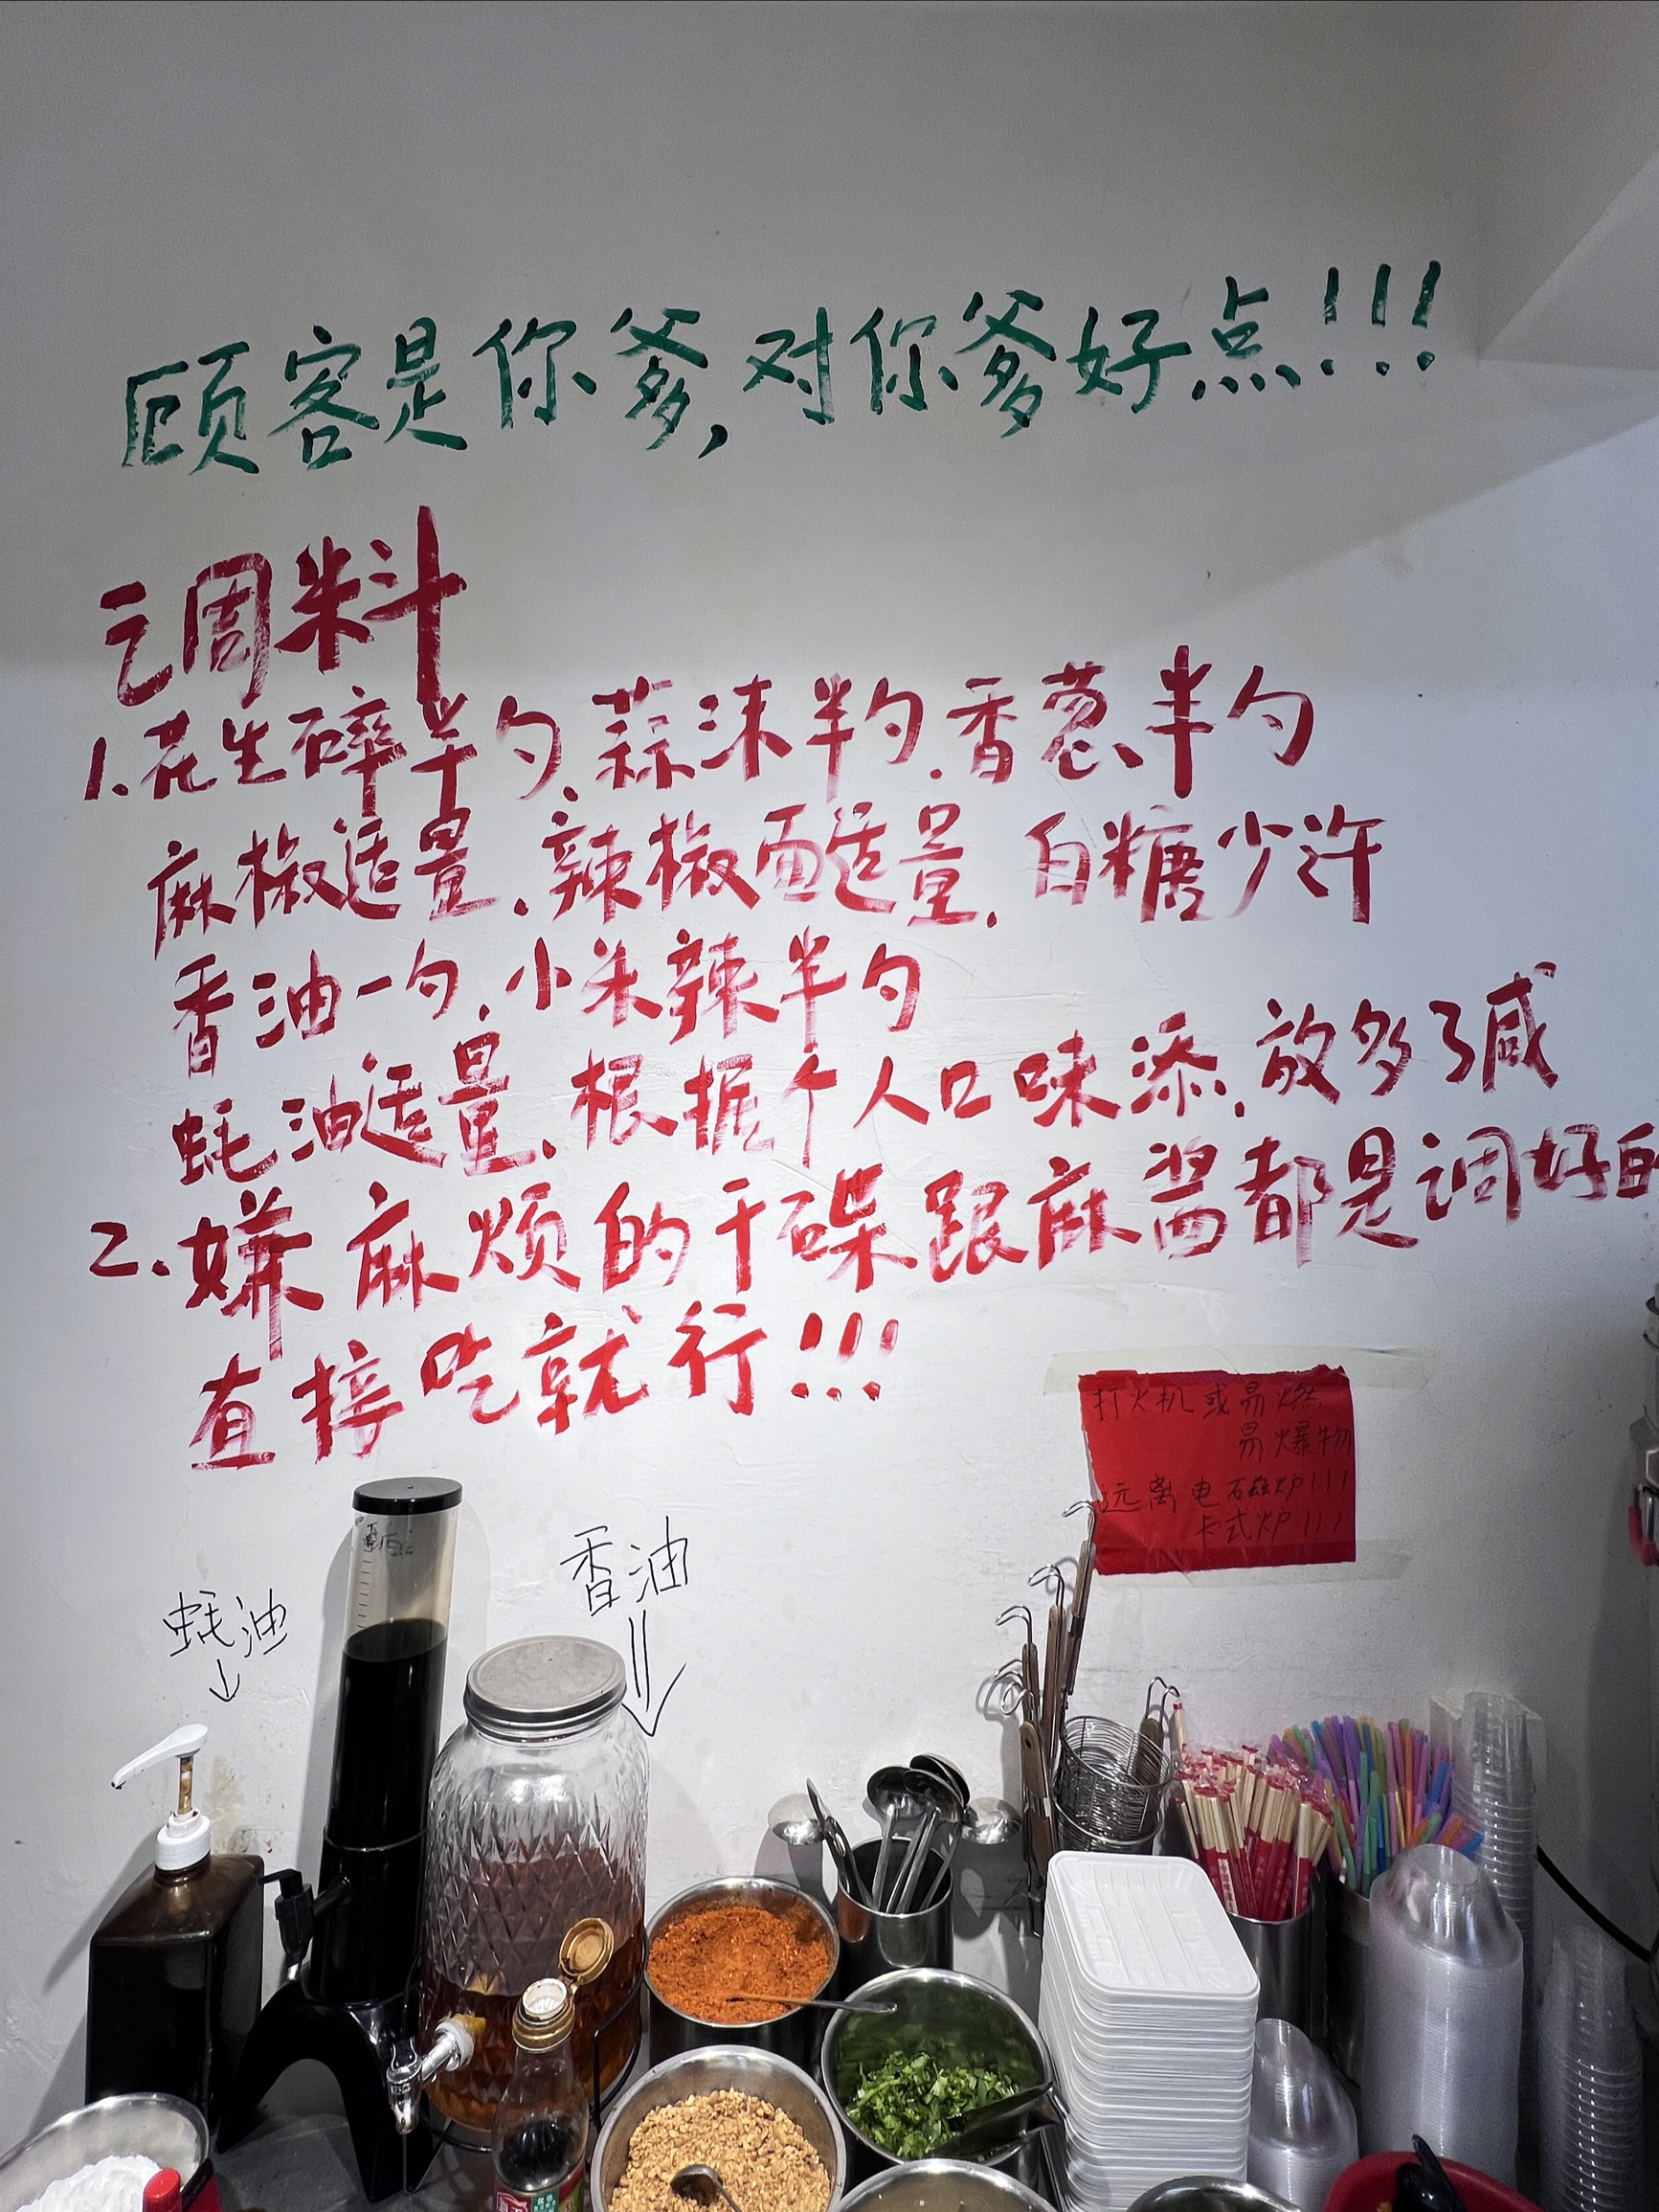 顾客是你爹,对你爹好点!!!
调料
1.花生碎半勺.蒜沫半勺.香葱半勺
麻椒适量.辣椒面适量.白糖少许
香油一勺.小米辣半勺
蚝油适量.根据个人口味添.放多了咸
2.嫌麻烦的干碟跟麻酱都是调好的
直接吃就行!!!
打火机或易燃
易爆物
远离电磁炉!!!
卡式炉!!!
香油
蚝油